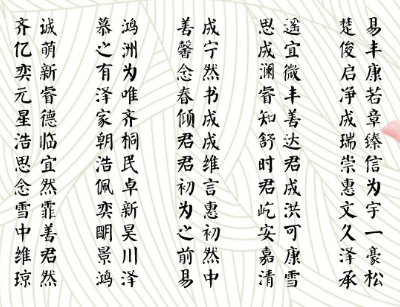 易丰康若章臻信为宇一豪松
楚俊启净成瑞崇惠文久泽承
遥宜微丰善达君成洪可康雪
思成澜睿知舒时君屹安嘉清
成宁然书成成维言惠初然中
善馨念春倾君君初为之前易
鸿洲为唯齐桐民卓新昊川泽
慕之有泽家朝浩佩奕明景鸿
诚萌新睿德临宜然霏善君然
齐亿奕元星浩思念雪中维琼